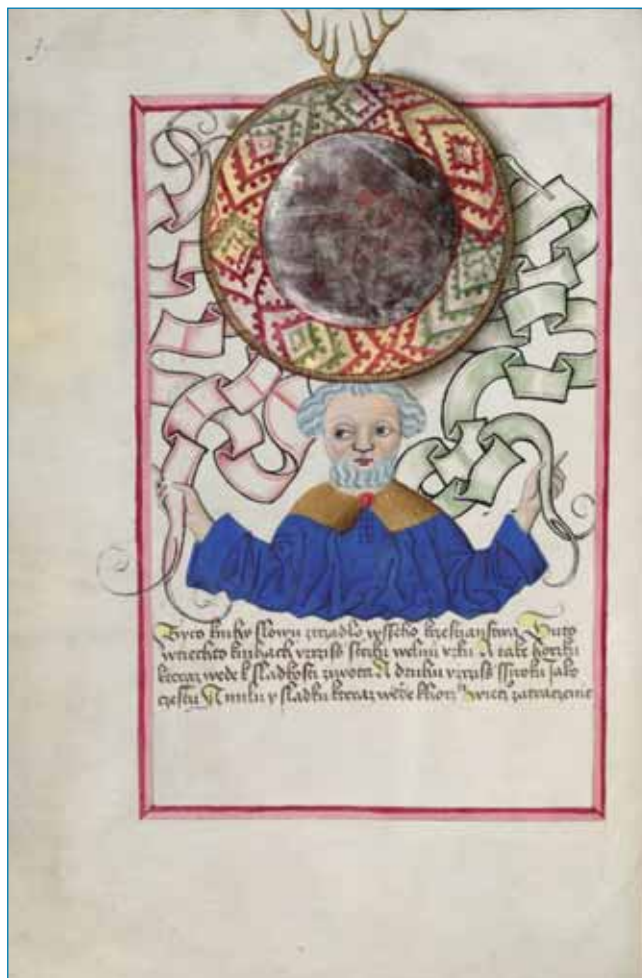 Tyto knihy slowu zrzadlo wsseho krzestianstwa Tuto
wtiechto knihach vzrziss stezku welmi vzku A take horzku
kteraz wede k sladkosti ziwota A druhu vzrziss ssyroku Jako
czestu A milu y sladku kteraz wede wieczne zatraczenie